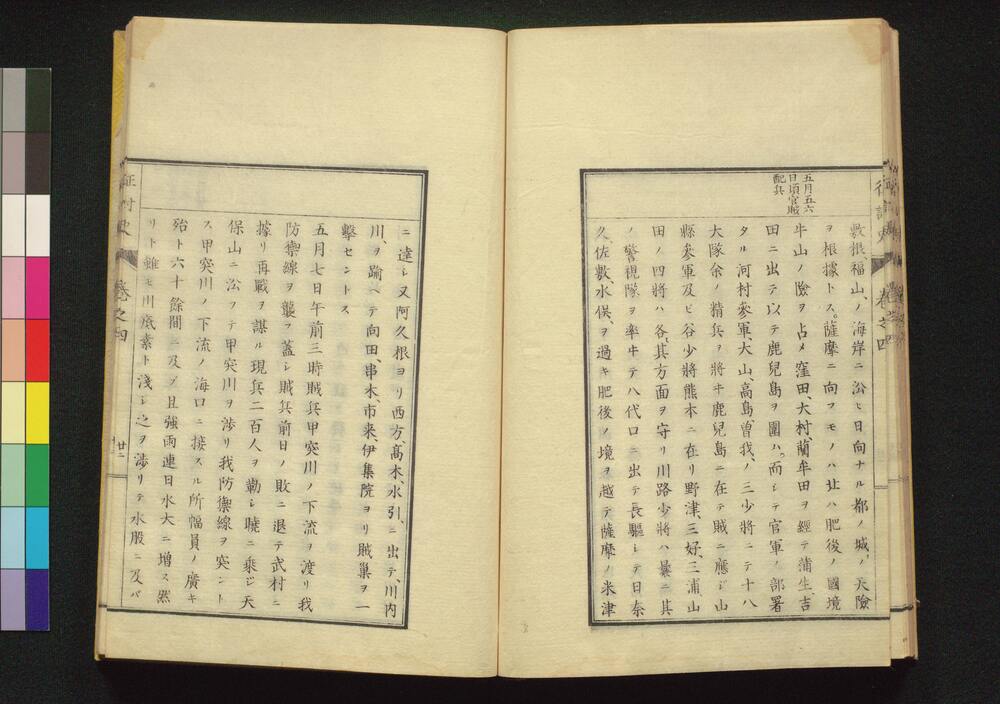 五月五六
日頃官賊
配兵
敷根福山、ノ海岸ニ沿ヒ日向ナル都ノ城、ノ天險
ヲ根據トス。薩摩ニ向フモノハ北ハ肥後、ノ國境
牛山ノ險ヲ占メ窪田、大村、藺牟田ヲ經テ蒲生、吉
田ニ出テ以テ鹿兒島ヲ圍ハ。而シテ官軍、ノ部署
タル河村參軍、大山、高島、曽我、ノ三少將ニテ十八
大隊余ノ精兵ヲ將ヰ鹿兒島ニ在テ賊ニ應シ山
縣參軍及ヒ谷少將熊本ニ在リ野津、三好、三浦、山
田ノ四將ハ各、其方面ヲ守リ川路少將ハ曩ニ其
ノ警視隊ヲ率ヰテ八代口ニ出テ長驅シテ日奈
久、佐敷水俣、ヲ過キ肥後ノ境ヲ越テ薩摩ノ米津
ニ達シ又阿久根ヨリ西方、高木、水引、ニ出テ、川内
川、ヲ踰ヘテ向田、串木、市来、伊集院ヨリ賊巢ヲ一
擊セントス
五月七日午前三時賊兵甲突川ノ下流ヲ渡リ我
防禦線ヲ襲フ蓋シ賊兵前日ノ敗ニ退テ武村ニ
據リ再戰ヲ謀ル現兵二百人ヲ勒シ曉ニ乘シ天
保山ニ沿フテ甲突川ヲ渉リ我防禦線ヲ突ント
ス甲突川ノ下流ノ海口ニ接スル所幅員ノ廣キ
殆ト六十餘間ニ及ブ且強雨連日水大ニ増ス然
リト雖モ川底素ト淺シ之ヲ渉リテ水股ニ及バ
征討史
卷之四
廿二